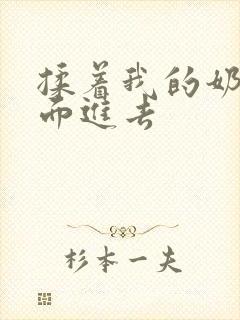 揉着我的奶
而进去
杉本一夫